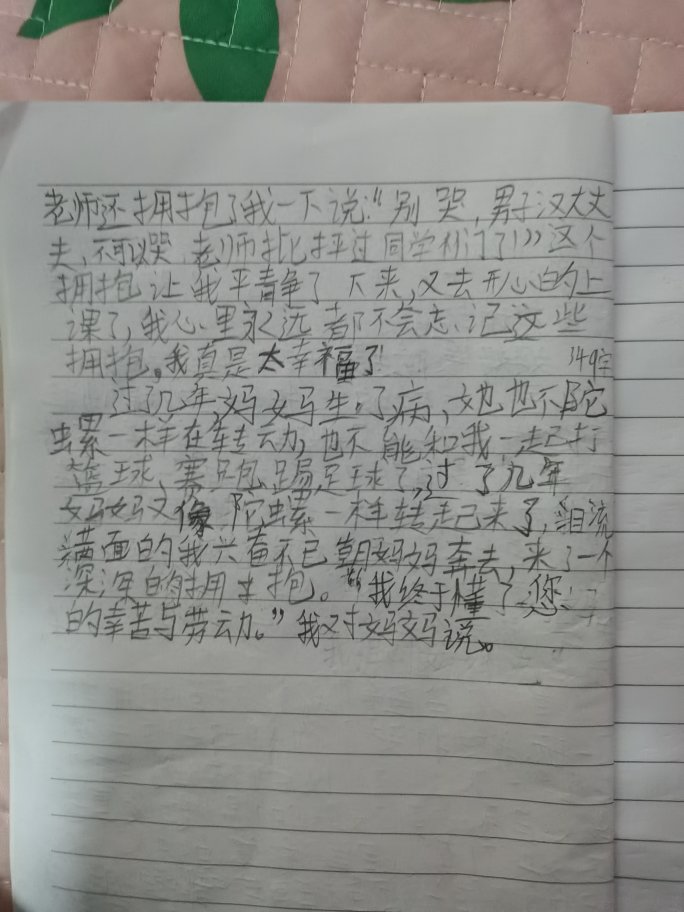 老师还拥抱了我一下说：“别哭，男子汉大丈
夫，不可以哭，老师批评过同学们了！”这个
拥抱让我平静了下来，又去开心的上
课了，我心里永远都不会忘记这些
拥抱。我真是太幸福了！ 349字
过了几年，妈妈生了病，她也不陀
螺一样在转动，也不能和我一起打
篮球、赛跑、踢足球了，过了几年
妈妈又像陀螺一样转起来了，泪流
满面的我兴奋不已朝妈妈奔去，来了一个
深深的拥抱。“我终于懂了您们
的幸苦与劳动。”我对妈妈说。